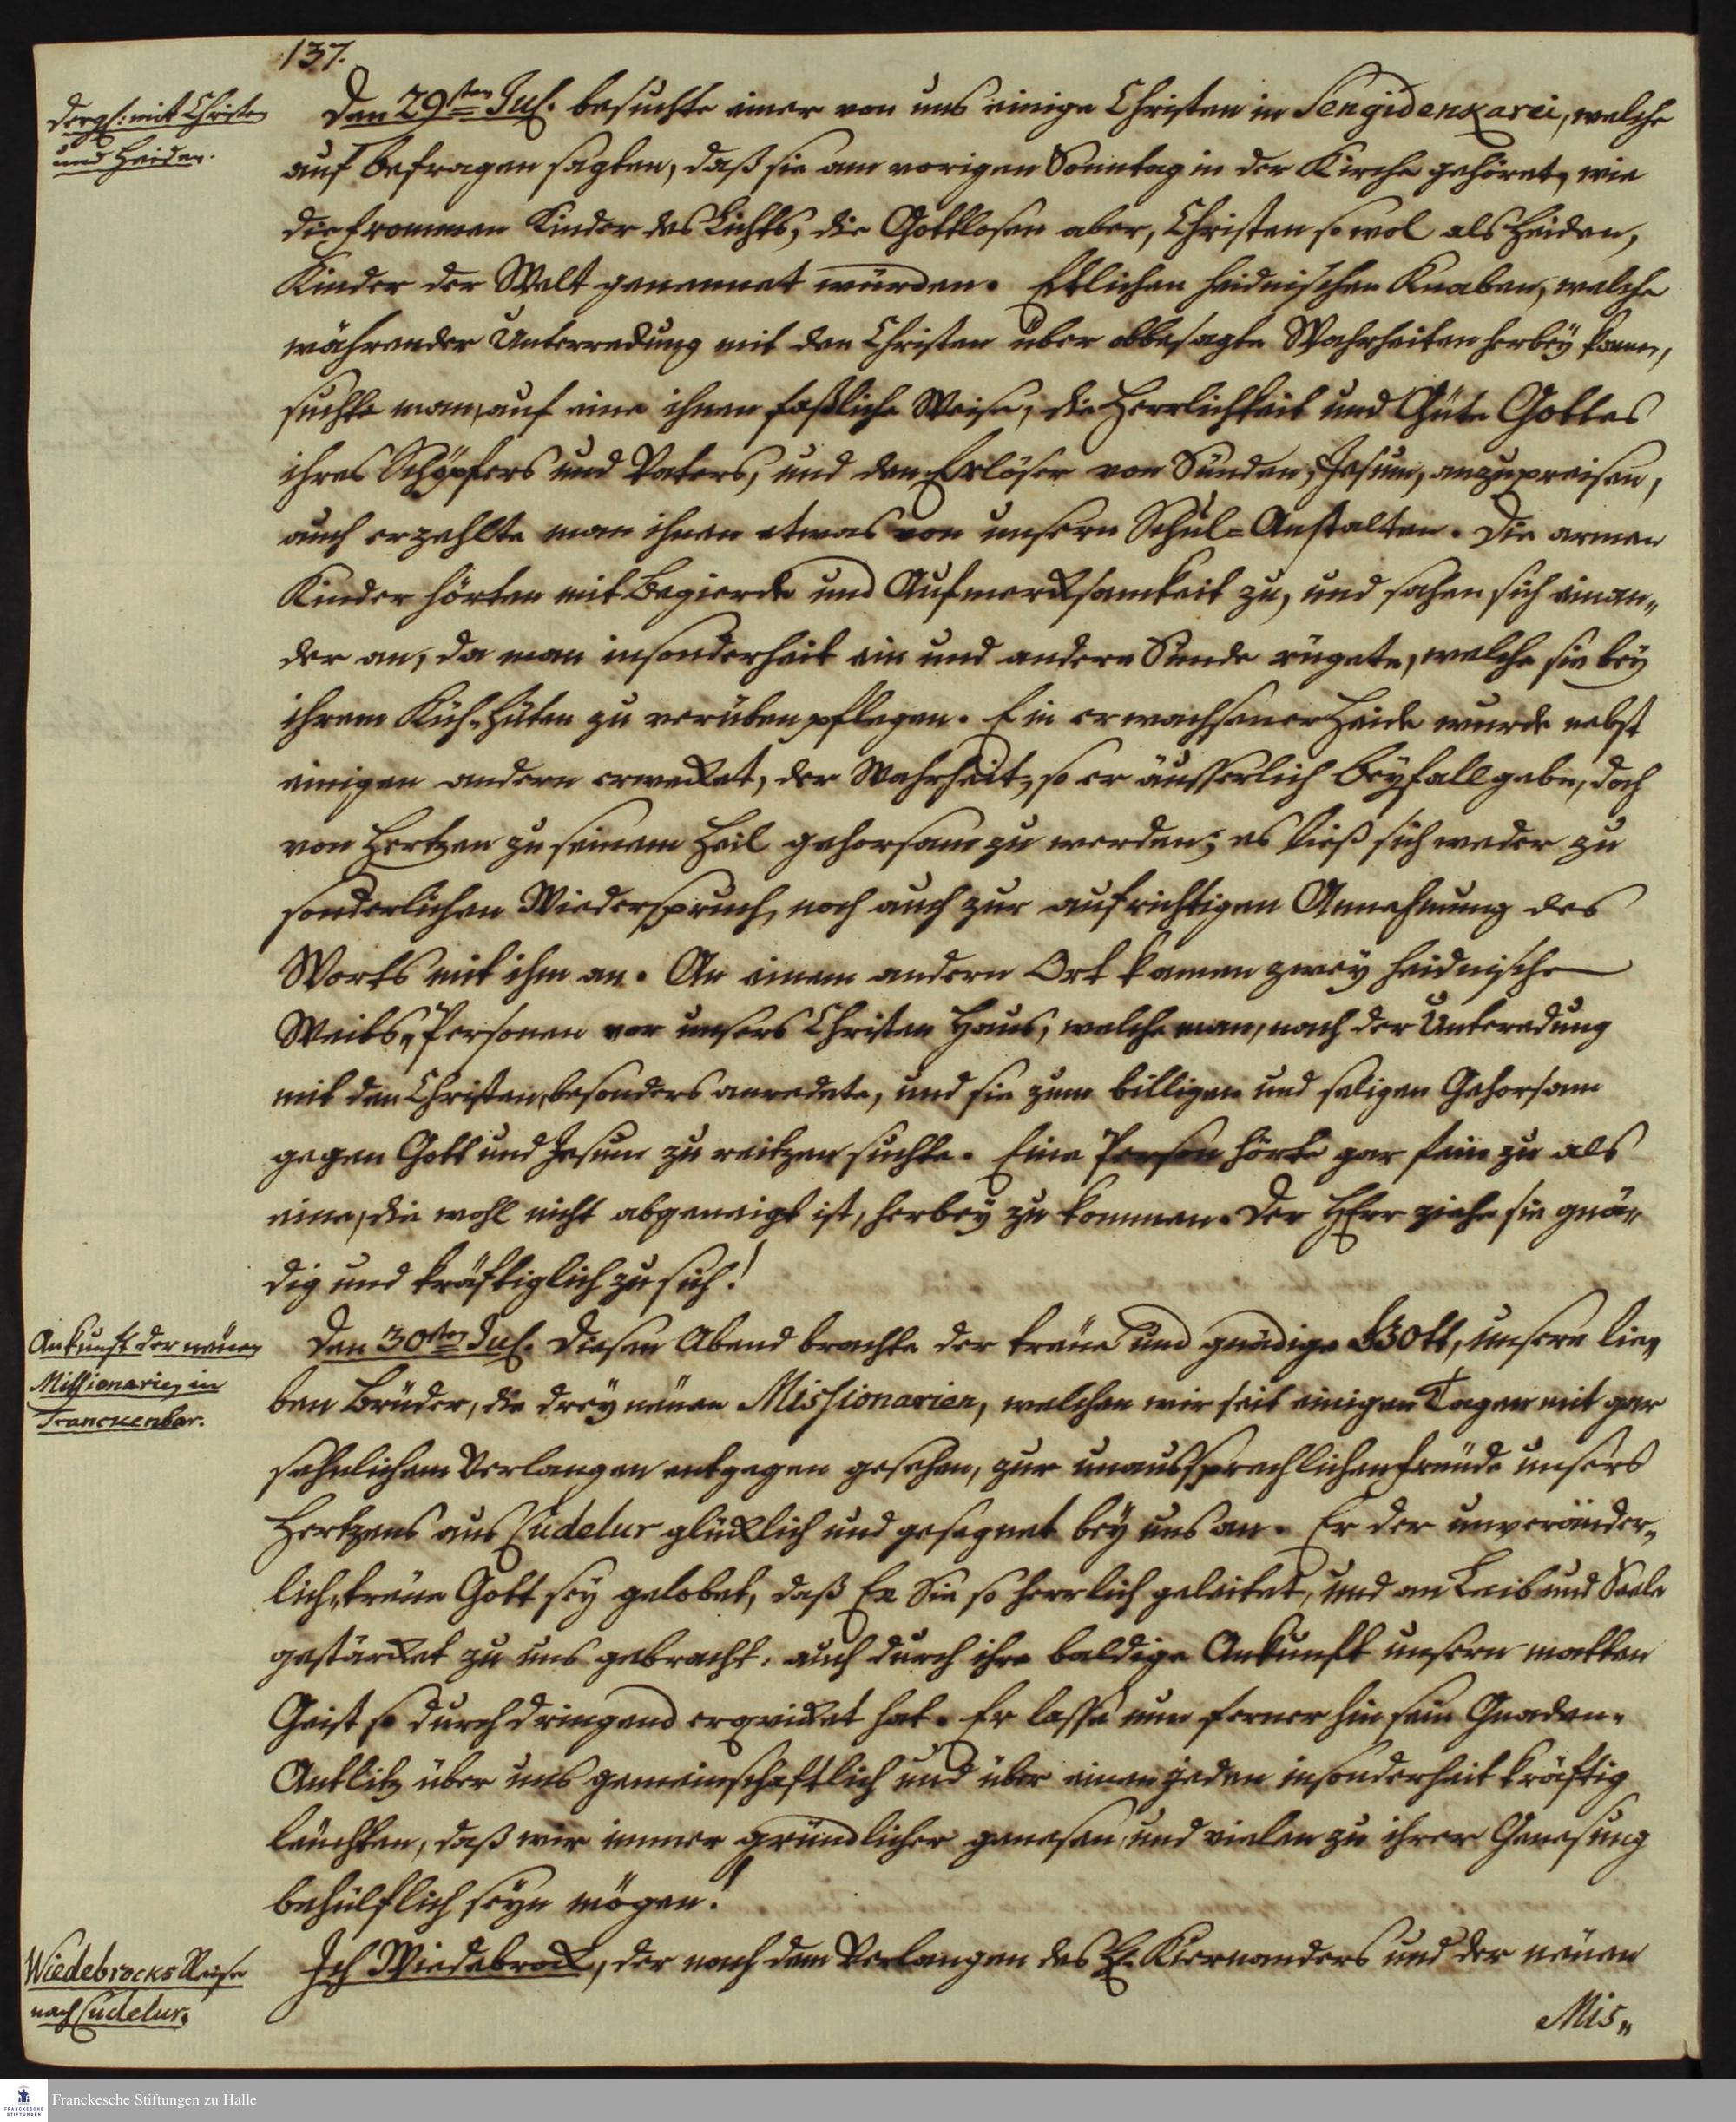 137.
dergl. mit Christen
und Heiden.
Den 29sten Jul. besuchte einer von uns einige Christen in Sengidenxarei, welche
auf befragen sagten, daß sie am vorigen Sonntag in der Kirche gehöret, wie
die frommen Kinder des Lichts, die Gottlosen aber, Christen so wol als Heiden,
Kinder der Welt genennet würden. Etlichen heidnischen Knaben, welche
währender Unterredung mit den Christen über obbesagte Wahrheiten herbey kamen,
suchte man, auf eine ihnen faßliche Weise, die Herrlichkeit und Güte Gottes
ihres Schöpfers und Vaters, und den Erlöser von Sünden, Jesum, anzupreisen,
auch erzehlte man ihnen etwas von unsern Schul-Anstalten. Die armen
Kinder hörten mit Begierde und Aufmercksamkeit zu, und sahen sich einan„
der an, da man insonderheit ein und andere Sünde rügete, welche sie bey
ihrem Küh-hüten zu verüben pflegen. Ein erwachsener Heide wurde nebst
einigen andern erwecket, der Wahrheit, so er äusserlich Beyfall gebe, doch
von Hertzen zu seinem Heil gehorsam zu werden; es ließ sich weder zu
sonderlichen Wiederspruch, noch auch zur aufrichtigen Annehmung des
Worts mit ihm an. An einem andern Ort kamen zwey heidnische
Weibs„Personen vor unsers Christen Haus, welche man, nach der Unteredung
mit den Christen, besonders anredete, und sie zum billigen und seligen Gehorsam
gegen Gott und Jesum zu reitzen suchte. Eine Person hörte gar fein zu als
eine, die wohl nicht abgeneigt ist, herbey zu kommen. Der HErr ziehe sie gnä„
dig und kräftiglich zu sich!
Ankunft der neuen
Missionarien in
Tranckenbar.
Den 30sten Jul. Diesen Abend brachte der treue und gnädige GOtt, unsere lie„
ben Brüder, die drey neuen Missionarien, welchen wir seit einigen Tagen mit gar
sehnlichem Verlangen entgegen gesehen, zur unaussprechlichen Freude unsers
Hertzens aus Cudelur glücklich und gesegnet bey uns an. Er der unveränder„
lich„treue Gott sey gelobet, daß Er Sie so herrlich geleitet, und an Leib und Seele
gestärcket zu uns gebracht, auch durch ihre baldige Ankunft unsern matten
Geist so durchdringend erqvicket hat. Er lasse nun ferner hin sein Gnaden-
Antlitz über uns gemeinschaftlich und über einen jeden insonderheit kräftig
leuchten, daß wir immer gründlicher genesen, und vielen zu ihrer Genesung
behülflich seyn mögen!
Wiedebrocks Reise
nach Cudelur.
Ich Wiedebrock, der nach dem Verlangen des H. Kiernanders und der neuen
Mis„
Franckesche Stiftungen zu Halle
FRANCKESCHE
STIFTUNGEN